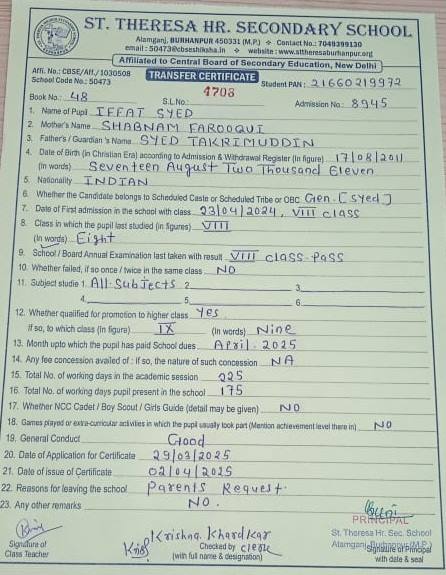 ST. THERESA HR. SECONDARY SCHOOL
Alamganj, BURHANPUR 450331 (M.P.) • Contact No.: 7049399130
email : 50473@cbseshiksha.in • website : www.sttheresaburhanpur.org
Affiliated to Central Board of Secondary Education, New Delhi
Affi. No.: CBSE/Aff./1030508
School Code No.: 50473
TRANSFER CERTIFICATE
Student PAN : 21660219972
Book No.: 48
S.L.No.: 4708
Admission No.: 8945
1. Name of Pupil IFFAT SYED
2. Mother's Name SHABNAM FAROOQUI
3. Father's / Guardian's Name SYED TAKRIMUDDIN
4. Date of Birth (in Christian Era) according to Admission & Withdrawal Register (In figure) 17/08/2011
(in words) Seventeen August Two Thousand Eleven
5. Nationality INDIAN
6. Whether the Candidate belongs to Scheduled Caste or Scheduled Tribe or OBC Gen. [Syed]
7. Date of First admission in the school with class 23/04/2024, VIII class
8. Class in which the pupil last studied (in figures) VIII
(In words) Eight
9. School / Board Annual Examination last taken with result VIII class Pass
10. Whether failed, if so once / twice in the same class NO
11. Subject studie 1. All Subjects 2. 3.
4. 5. 6.
12. Whether qualified for promotion to higher class Yes
If so, to which class (In figure) IX (In words) Nine
13. Month upto which the pupil has paid School dues April. 2025
14. Any fee concession availed of : if so, the nature of such concession NA
15. Total No. of working days in the academic session 225
16. Total No. of working days pupil present in the school 175
17. Whether NCC Cadet / Boy Scout / Girls Guide (detail may be given) NO
18. Games played or extra-curricular activities in which the pupil usually took part (Mention achievement level there in) NO
19. General Conduct Good
20. Date of Application for Certificate 29/03/2025
21. Date of issue of Certificate 02/04/2025
22. Reasons for leaving the school Parents Request.
23. Any other remarks NO.
PRINCIPAL
St. Theresa Hr. Sec. School
Alamganj, Burhanpur (M.P.)
Signature of Class Teacher
Krishna. Khardkar
Checked by Clerk
(with full name & designation)
Signature of Principal
with date & seal